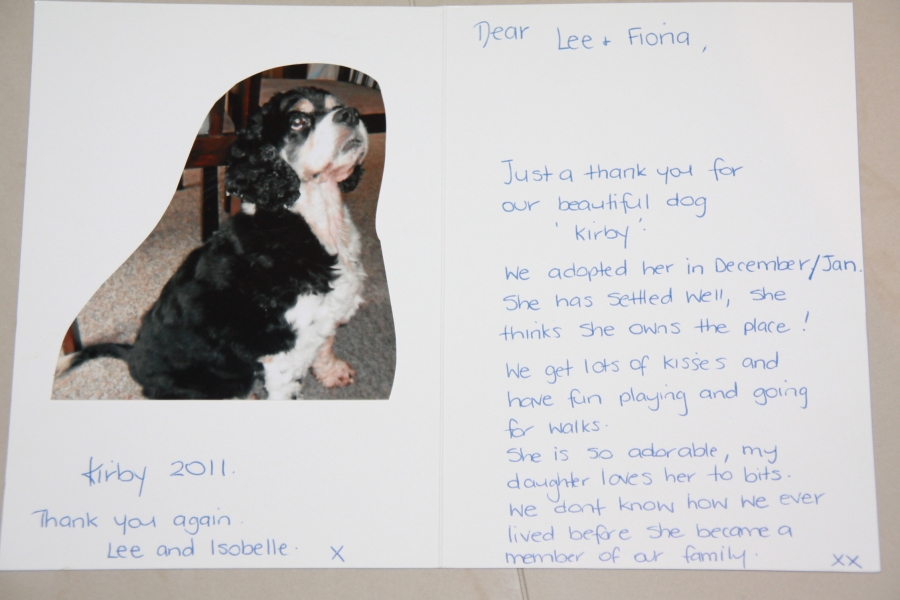 Dear Lee + Fiona,
Just a thank you for
our beautiful dog
'Kirby'.
We adopted her in December/Jan.
She has settled well, she
thinks she owns the place!
We get lots of kisses and
have fun playing and going
for walks.
She is so adorable, my
daughter loves her to bits.
We dont know how we ever
lived before she became a
member of our family.
xx
Kirby 2011.
Thank you again
Lee and Isobelle. x